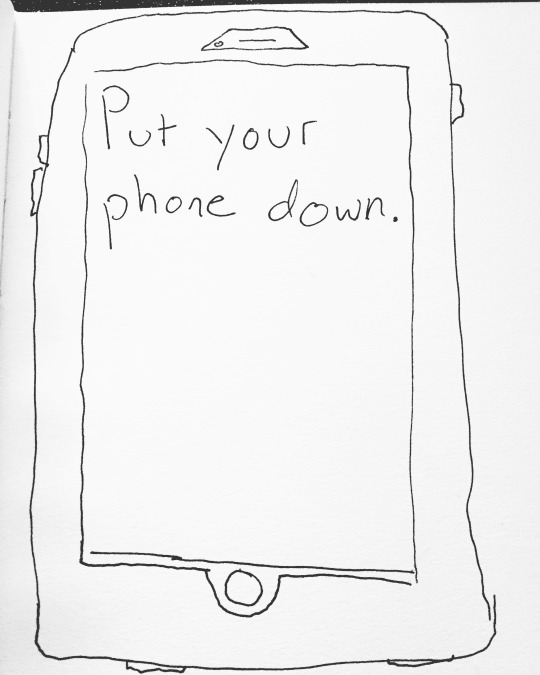 Put your
phone down.